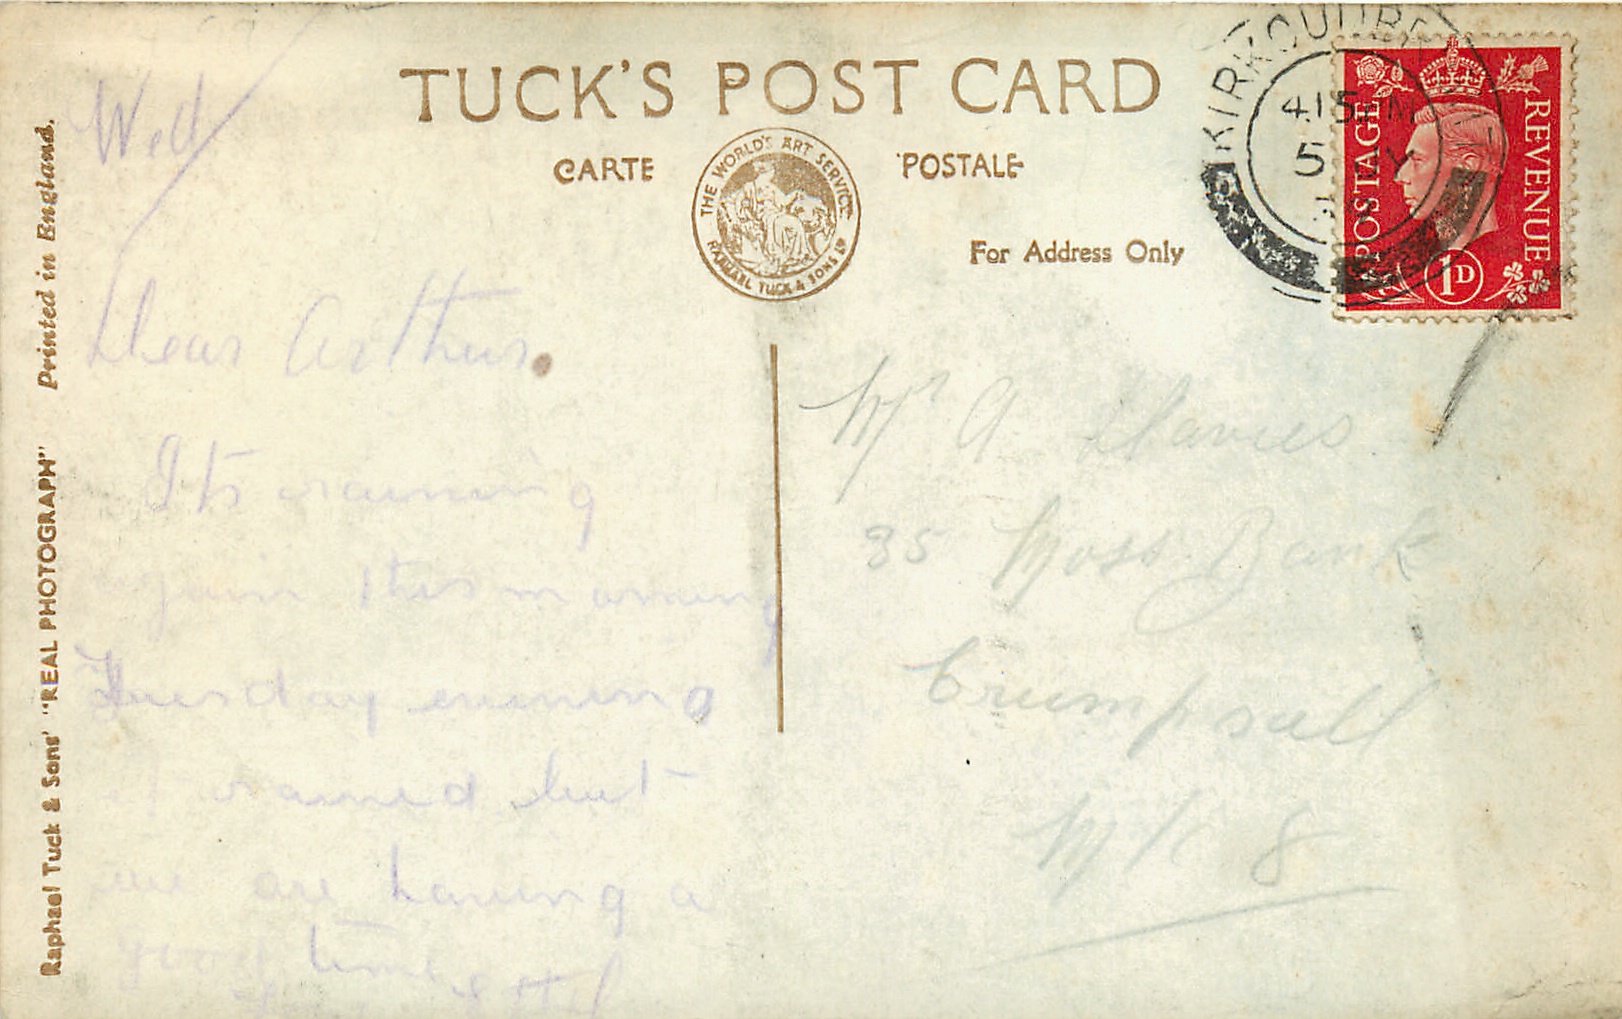 TUCK'S POST CARD
CARTE POSTALE
THE WORLD'S ART SERVICE
RAPHAEL TUCK & SONS LD
For Address Only
KIRKCUDBRI
4.15 PM
5 JY
POSTAGE
REVENUE
1D
Raphael Tuck & Sons' "REAL PHOTOGRAPH" Printed in England.
Wed
Dear Arthur.
Its raining
again this morning
Tuesday evening
it rained but
we are having a
good time
Mr A Davies
35 Moss Bank
Crumpsall
M/C 8